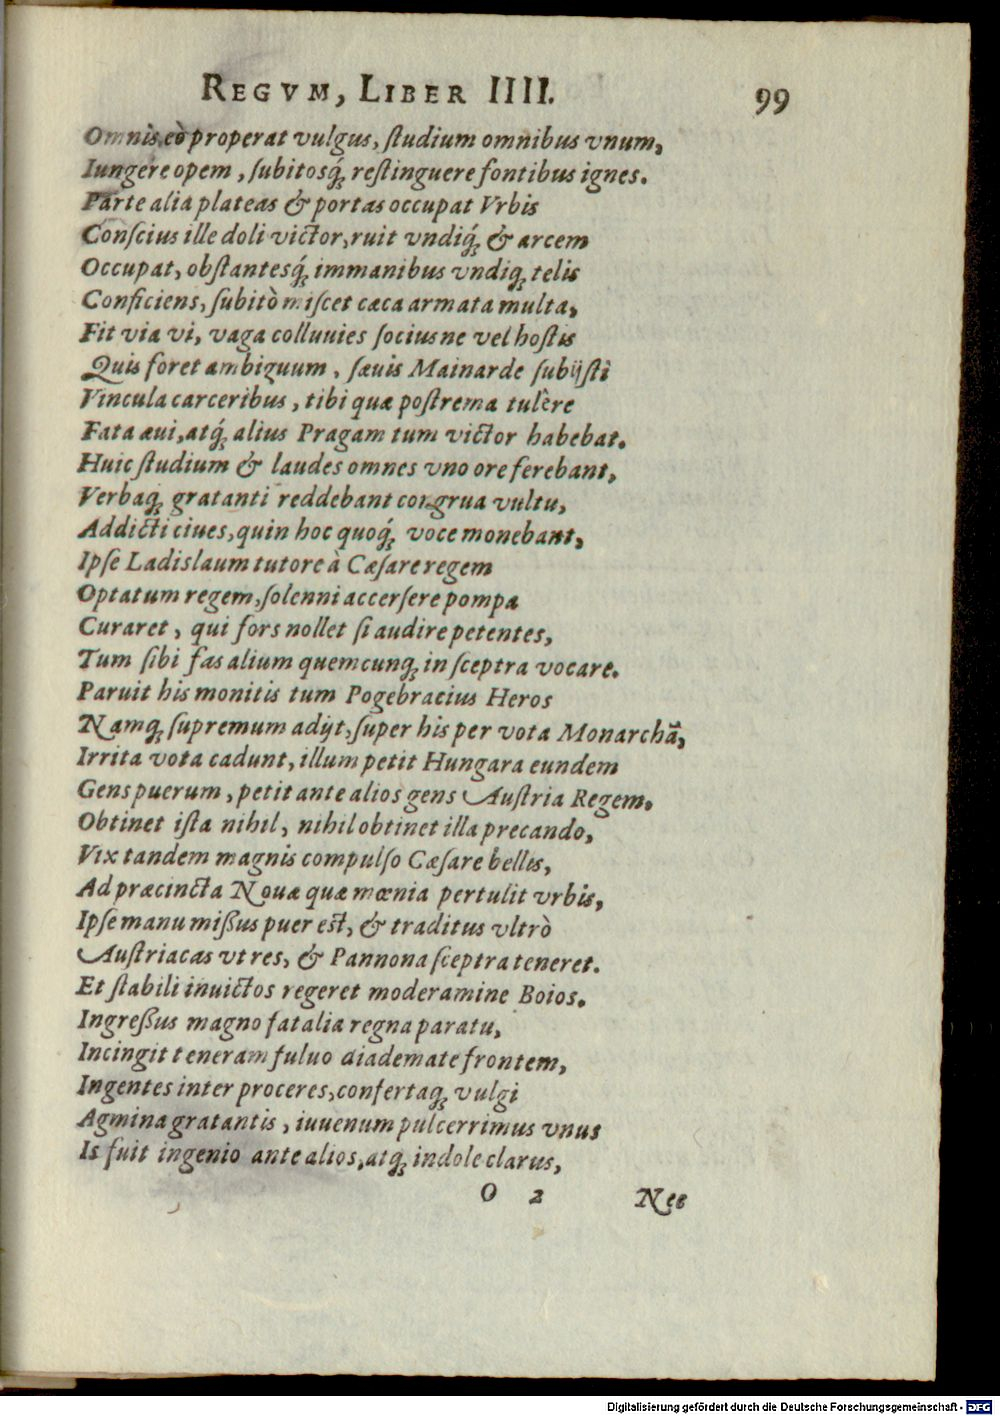 REGVM, LIBER IIII. 99
Omnis eò properat vulgus, ſtudium omnibus vnum,
Iungere opem, ſubitosq́; reſtinguere fontibus ignes.
Parte alia plateas & portas occupat Vrbis
Conſcius ille doli victor, ruit vndiq́; & arcem
Occupat, obſtantesq́; immanibus vndiq; telis
Conficiens, ſubitò miſcet cæca armata multa,
Fit via vi, vaga colluuies ſociusne vel hoſtis
Quis foret ambiguum, ſæuis Mainarde ſubijſti
Vincula carceribus, tibi quæ poſtrema tulêre
Fata æui, atq́; alius Pragam tum victor habebat.
Huic ſtudium & laudes omnes vno ore ferebant,
Verbaq; gratanti reddebant congrua vultu,
Addicti ciues, quin hoc quoq́; voce monebant,
Ipſe Ladislaum tutore à Cæſare regem
Optatum regem, ſolenni accerſere pompa
Curaret, qui fors nollet ſi audire petentes,
Tum ſibi fas alium quemcunq; in ſceptra vocare.
Paruit his monitis tum Pogebracius Heros
Namq; ſupremum adijt, ſuper his per vota Monarchã,
Irrita vota cadunt, illum petit Hungara eundem
Gens puerum, petit ante alios gens Auſtria Regem.
Obtinet iſta nihil, nihil obtinet illa precando,
Vix tandem magnis compulſo Cæſare bellis,
Ad præcincta Nouæ quæ mœnia pertulit vrbis,
Ipſe manu mißus puer eſt, & traditus vltrò
Auſtriacas vt res, & Pannona ſceptra teneret.
Et ſtabili inuictos regeret moderamine Boios.
Ingreßus magno fatalia regna paratu,
Incingit teneram fuluo diademate frontem,
Ingentes inter proceres, confertaq; vulgi
Agmina gratantis, iuuenum pulcerrimus vnus
Is fuit ingenio ante alios, atq; indole clarus,
O 2 Nec
Digitalisierung gefördert durch die Deutsche Forschungsgemeinschaft - DFG